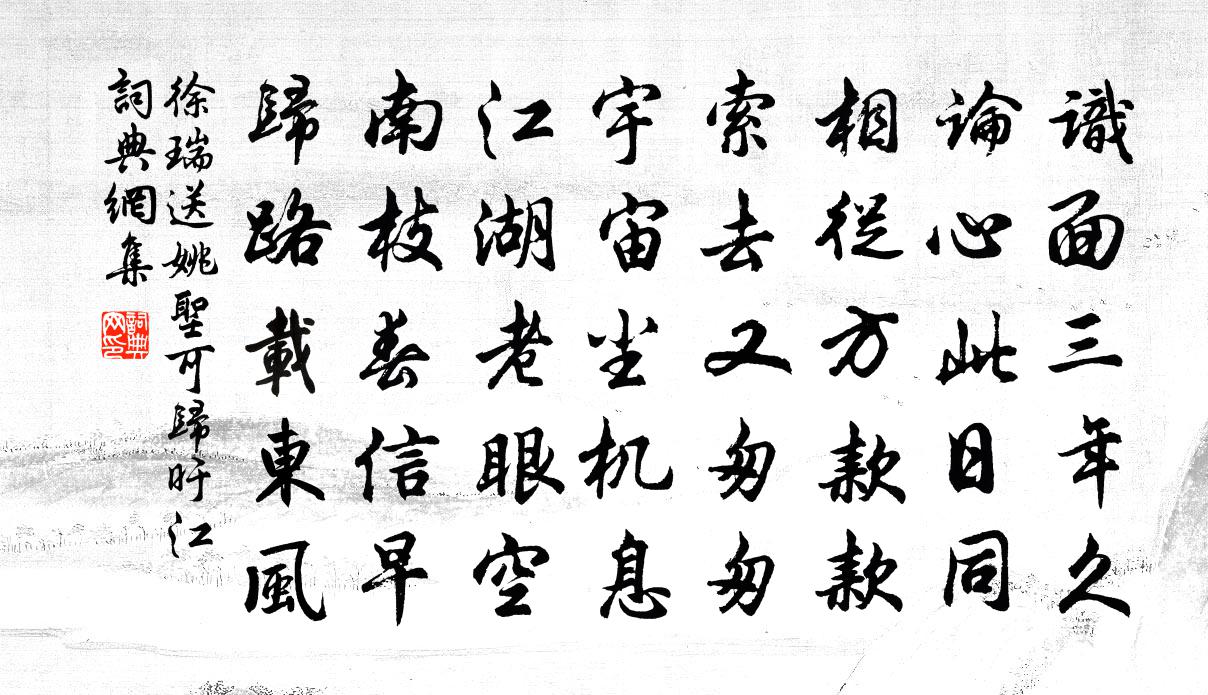 識面三年久
論心此日同
相從方款款
索去又匆匆
宇宙尘机息
江湖老眼空
南枝春信早
歸路載東風
徐瑞送姚聖可歸旴江
詞典網集
詞典网印